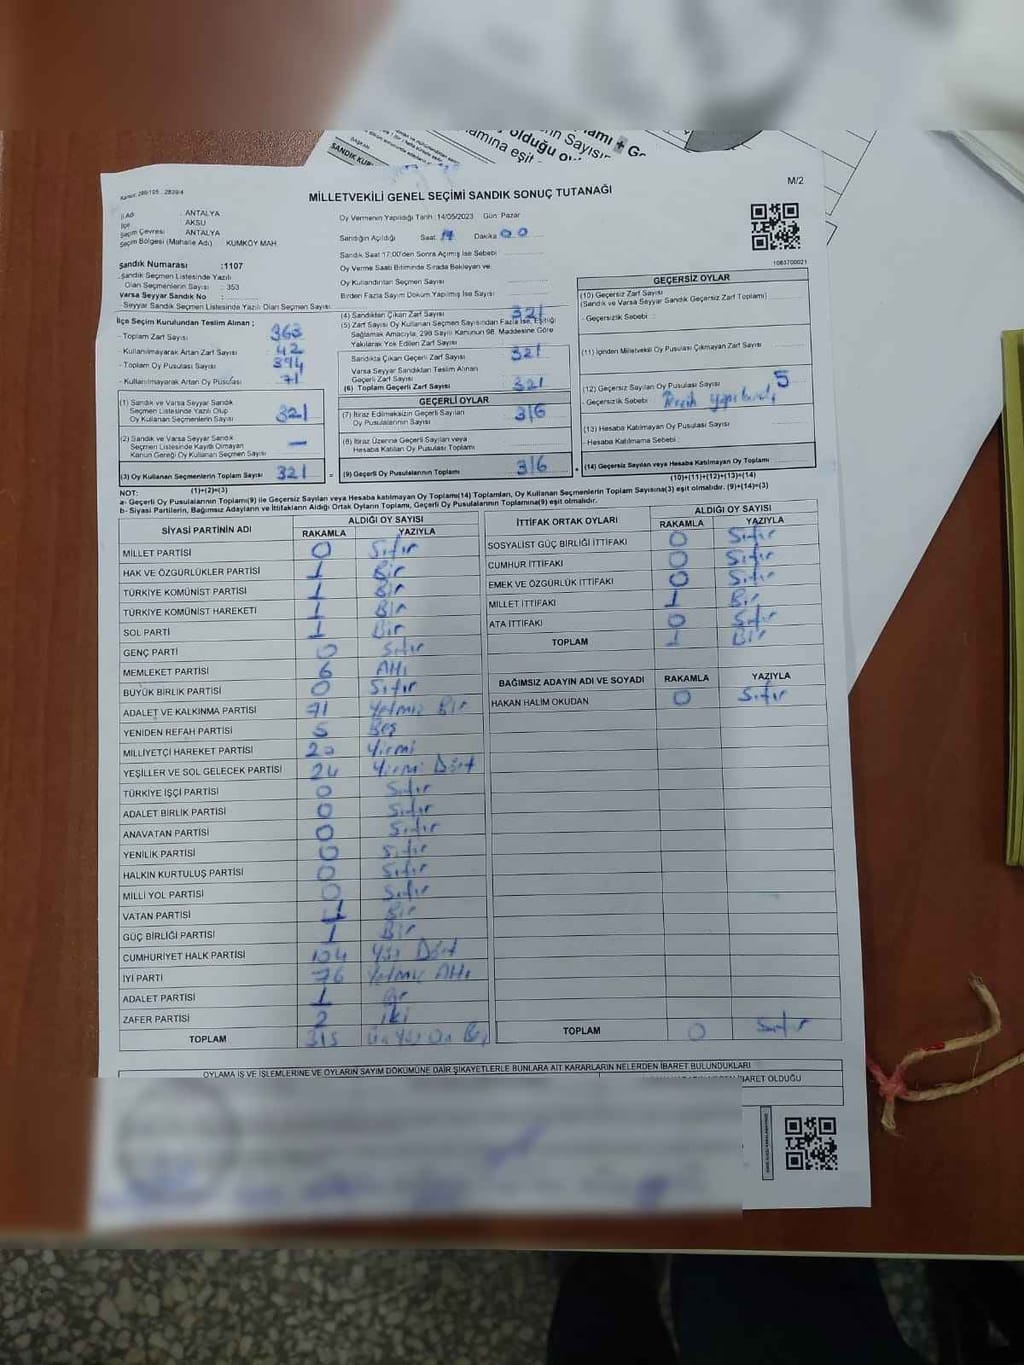 MİLLETVEKİLİ GENEL SEÇİMİ SANDIK SONUÇ TUTANAĞI
M/2
İl Adı : ANTALYA
İlçe : AKSU
Seçim Çevresi : ANTALYA
Seçim Bölgesi (Mahalle Adı) KUMKÖY MAH.
Sandık Numarası :1107
Sandık Seçmen Listesinde Yazılı
Olan Seçmenlerin Sayısı : 353
Varsa Seyyar Sandık No :
Seyyar Sandık Seçmen Listesinde Yazılı Olan Seçmen Sayısı :
Oy Vermenin Yapıldığı Tarih :14/05/2023 Gün: Pazar
Sandığın Açıldığı Saat: 17 Dakika 00
Sandık Saat 17:00'den Sonra Açılmış İse Sebebi :
Oy Verme Saati Bitiminde Sırada Bekleyen ve
Oy Kullandırılan Seçmen Sayısı :
Birden Fazla Sayım Döküm Yapılmış İse Sayısı :
1083700021
İlçe Seçim Kurulundan Teslim Alınan ;
- Toplam Zarf Sayısı : 363
- Kullanılmayarak Artan Zarf Sayısı : 42
- Toplam Oy Pusulası Sayısı : 394
- Kullanılmayarak Artan Oy Pusulası : 71
(1) Sandık ve Varsa Seyyar Sandık
Seçmen Listesinde Yazılı Olup
Oy Kullanan Seçmenlerin Sayısı 321
(2) Sandık ve Varsa Seyyar Sandık
Seçmen Listesinde Kayıtlı Olmayan
Kanun Gereği Oy Kullanan Seçmen Sayısı —
(3) Oy Kullanan Seçmenlerin Toplam Sayısı 321
(1)+(2)=(3)
(4) Sandıktan Çıkan Zarf Sayısı 321
(5) Zarf Sayısı Oy Kullanan Seçmen Sayısından Fazla İse, Eşitliği
Sağlamak Amacıyla, 298 Sayılı Kanunun 98. Maddesine Göre
Yakılarak Yok Edilen Zarf Sayısı :
Sandıkta Çıkan Geçerli Zarf Sayısı 321
Varsa Seyyar Sandıktan Teslim Alınan
Geçerli Zarf Sayısı
(6) Toplam Geçerli Zarf Sayısı 321
GEÇERLİ OYLAR
(7) İtiraz Edilmeksizin Geçerli Sayılan
Oy Pusulalarının Sayısı 316
(8) İtiraz Üzerine Geçerli Sayılan veya
Hesaba Katılan Oy Pusulası Toplamı
= (9) Geçerli Oy Pusulalarının Toplamı 316
GEÇERSİZ OYLAR
(10) Geçersiz Zarf Sayısı
(Sandık ve Varsa Seyyar Sandık Geçersiz Zarf Toplamı)
- Geçersizlik Sebebi :
(11) İçinden Milletvekili Oy Pusulası Çıkmayan Zarf Sayısı
(12) Geçersiz Sayılan Oy Pusulası Sayısı 5
- Geçersizlik Sebebi :
(13) Hesaba Katılmayan Oy Pusulası Sayısı
- Hesaba Katılmama Sebebi :
+ (14) Geçersiz Sayılan veya Hesaba Katılmayan Oy Toplamı
(10)+(11)+(12)+(13)=(14)
NOT:
a- Geçerli Oy Pusulalarının Toplamı(9) ile Geçersiz Sayılan veya Hesaba katılmayan Oy Toplamı(14) Toplamları, Oy Kullanan Seçmenlerin Toplam Sayısına(3) eşit olmalıdır. (9)+(14)=(3)
b- Siyasi Partilerin, Bağımsız Adayların ve İttifakların Aldığı Ortak Oyların Toplamı, Geçerli Oy Pusulalarının Toplamına(9) eşit olmalıdır.
SİYASİ PARTİNİN ADI ALDIĞI OY SAYISI
RAKAMLA YAZIYLA
MİLLET PARTİSİ 0 Sıfır
HAK VE ÖZGÜRLÜKLER PARTİSİ 1 Bir
TÜRKİYE KOMÜNİST PARTİSİ 1 Bir
TÜRKİYE KOMÜNİST HAREKETİ 1 Bir
SOL PARTİ 1 Bir
GENÇ PARTİ 0 Sıfır
MEMLEKET PARTİSİ 6 Altı
BÜYÜK BİRLİK PARTİSİ 0 Sıfır
ADALET VE KALKINMA PARTİSİ 71 Yetmiş Bir
YENİDEN REFAH PARTİSİ 5 Beş
MİLLİYETÇİ HAREKET PARTİSİ 20 Yirmi
YEŞİLLER VE SOL GELECEK PARTİSİ 24 Yirmi Dört
TÜRKİYE İŞÇİ PARTİSİ 0 Sıfır
ADALET BİRLİK PARTİSİ 0 Sıfır
ANAVATAN PARTİSİ 0 Sıfır
YENİLİK PARTİSİ 0 Sıfır
HALKIN KURTULUŞ PARTİSİ 0 Sıfır
MİLLİ YOL PARTİSİ 0 Sıfır
VATAN PARTİSİ 1 Bir
GÜÇ BİRLİĞİ PARTİSİ 1 Bir
CUMHURİYET HALK PARTİSİ 104 Yüz Dört
İYİ PARTİ 76 Yetmiş Altı
ADALET PARTİSİ 1 Bir
ZAFER PARTİSİ 2 İki
TOPLAM 315 Üç Yüz On Beş
İTTİFAK ORTAK OYLARI ALDIĞI OY SAYISI
RAKAMLA YAZIYLA
SOSYALİST GÜÇ BİRLİĞİ İTTİFAKI 0 Sıfır
CUMHUR İTTİFAKI 0 Sıfır
EMEK VE ÖZGÜRLÜK İTTİFAKI 0 Sıfır
MİLLET İTTİFAKI 1 Bir
ATA İTTİFAKI 0 Sıfır
TOPLAM 1 Bir
BAĞIMSIZ ADAYIN ADI VE SOYADI RAKAMLA YAZIYLA
HAKAN HALİM OKUDAN 0 Sıfır
TOPLAM 0 Sıfır
OYLAMA İŞ VE İŞLEMLERİNE VE OYLARIN SAYIM DÖKÜMÜNE DAİR ŞİKAYETLERLE BUNLARA AİT KARARLARIN NELERDEN İBARET BULUNDUKLARI
İBARET OLDUĞU